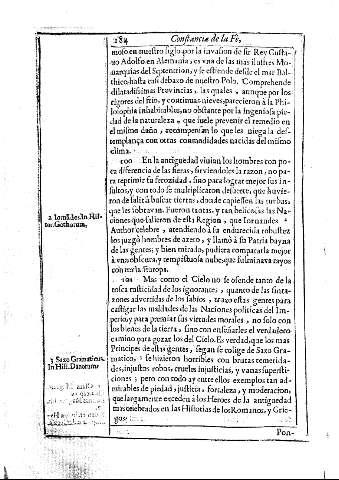 184 Constancia de la Fè,
moso en nuestro siglo por la invasion de su Rey Gusta-
vo Adolfo en Alemania, es vna de las mas ilustres Mo-
narquias del Septentrion, y se estiende desde el mar Bal-
thico hasta casi debaxo de nuestro Polo. Comprehende
dilatadissimas Provincias, las quales, aunque por los
rigores del frio, y continuas nieves, parecieron à la Phi-
losophia inhabitables, no obstante por la ingeniosa pie-
dad de la naturaleza, que suele prevenir el remedio en
el mismo daño, recompensan lo que les niega la des-
templança con otras comodidades nacidas del mismo
clima.
100 En la antiguedad vivian los hombres con po-
ca diferencia de las fieras, sirviendoles la razon, no pa-
ra reprimir su ferozidad, sino para lograr mejor sus in-
sultos, y con todo se multiplicaron de suerte, que huvie-
ron de salir à buscar tierras, donde cupiessen las turbas,
que les sobravan. Fueron tantas, y tan belicosas las Na-
ciones que salieron de esta Region, que Iornandes
Author celebre, atendiendo à su endurecida robustez
los juzgò hombres de azero, y llamò à su Patria bayna
de las gentes; y bien mirado, pudiera compararla mejor
à vna obscura, y tempestuosa nube, que fulminava rayos
contra la Europa.
101 Mas como el Cielo no se ofende tanto de la
tosca rusticidad de los ignorantes, quanto de las sinra-
zones advertidas de los sabios, traxo estas gentes para
castigar las maldades de las Naciones politicas del Im-
perio, y para premiar sus virtudes morales, no solo con
los bienes de la tierra, sino con enseñarles el verdadero
camino para gozar los del Cielo. Es verdad, que los mas
Principes de estas gentes, segun se colige de Saxo Gra-
matico, se hizieron horribles con brutas temerida-
des, injustos robos, crueles injusticias, y vanas supersti-
ciones; pero con todo ay entre ellos exemplos tan ad-
mirables de piedad, justicia, fortaleza, y moderacion,
que largamente exceden à los Heroes de la antiguedad
mas celebrados en las Historias de los Romanos, y Grie-
gos.
Pon-
2 Iornãdes. In His-
tor. Gothorum.
3 Saxo Gramatico.
In Hist. Danorum